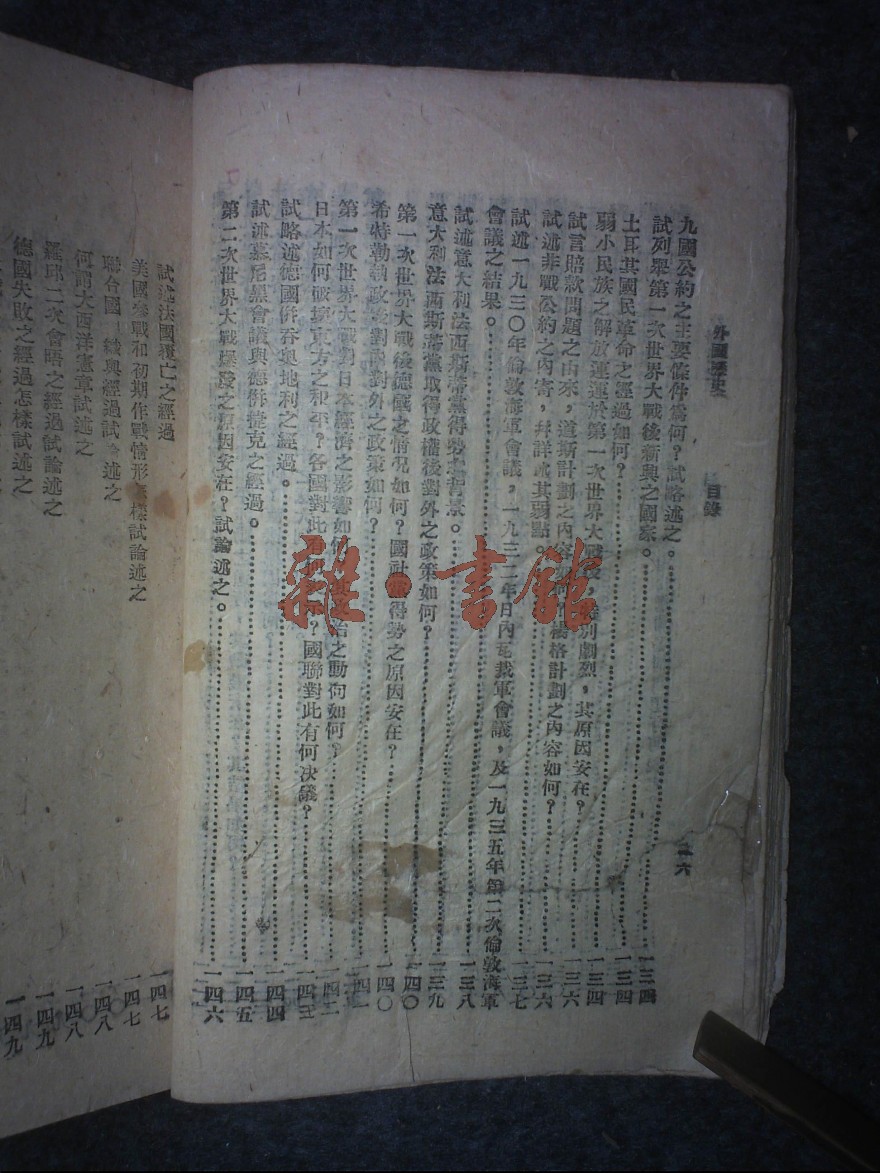 外國歷史
目錄
六
九國公約之主要條件爲何?試略述之。
試列舉第一次世界大戰後新興之國家。一三四
土耳其國民革命之經過如何?一三四
弱小民族之解放運運於第一次世界大戰後,特別劇烈,其原因安在?一三四
試言賠款問題之由來,道斯計劃之內容如何?楊格計劃之內容如何?一三六
試述非戰公約之內容,并詳述其弱點。一三六
試述一九三〇年倫敦海軍會議,一九三二年日內瓦裁軍會議,及一九三五年第二次倫敦海軍
會議之結果。一三七
試述意大利法西斯蒂黨得勢之背景。一三八
意大利法西斯蒂黨取得政權後對外之政策如何?一三九
第一次世界大戰後德國之情況如何?國社黨得勢之原因安在?一四〇
希特勒執政後對內對外之政策如何?一四〇
第一次世界大戰對日本經濟之影響如何?其政治之動向如何?
日本如何破壞東方之和平?各國對此有何 ?國聯對此有何決議?一四二
試略述德國併吞奧地利之經過。一四三
試述慕尼黑會議與德併捷克之經過。一四四
第二次世界大戰爆發之原因安在?試論述之。一四五
一四六
試述法國覆亡之經過 一四七
美國參戰和初期作戰情形怎樣試論述之 一四七
聯合國 織與經過試論述之 一四八
何謂大西洋憲章試述之 一四八
羅邱二次會晤之經過試論述之 一四九
德國失敗之經過怎樣試述之 一四九
雜·書館